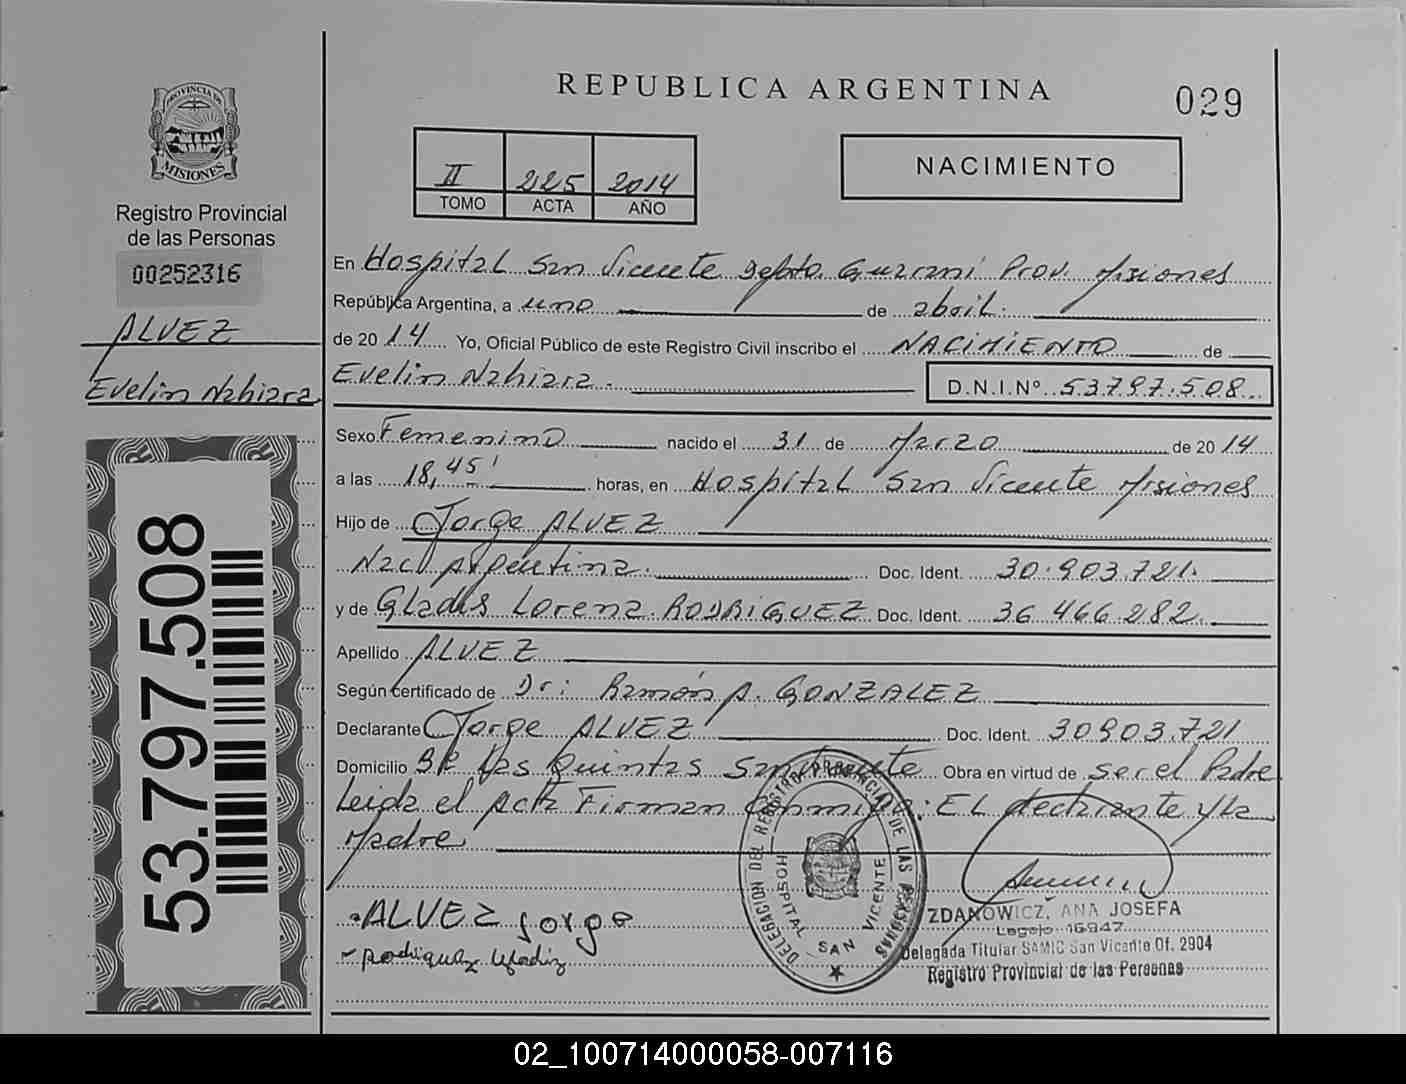 REPUBLICA ARGENTINA
029
PROVINCIA DE
MISIONES
Registro Provincial
de las Personas
00252316
ALVEZ
Evelin Nahiara
53.797.508
II 225 2014
TOMO ACTA AÑO
NACIMIENTO
En Hospital San Vicente Depto. Guarani Prov. Misiones
República Argentina, a uno de abril.
de 20 14 Yo, Oficial Público de este Registro Civil inscribo el NACIMIENTO de
Evelin Nahiara. D.N.I.Nº 53.797.508
Sexo Femenino nacido el 31 de Marzo de 20 14
a las 18,45' horas, en Hospital San Vicente Misiones
Hijo de Jorge ALVEZ
Nac. Argentina. Doc. Ident. 30.903.721.
y de Gladis Lorena RODRIGUEZ Doc. Ident. 36.466.282.
Apellido ALVEZ
Según certificado de Dr: Ramón A. GONZALEZ
Declarante Jorge ALVEZ Doc. Ident. 30903.721
Domicilio Bº Las Quintas San Vicente Obra en virtud de ser el Padre
Leida el Acta Firman Conmigo: EL declarante y La
Madre
ALVEZ Jorge
Rodriguez Gladiz
DELEGACION DEL REGISTRO PROVINCIAL DE LAS PERSONAS
HOSPITAL SAN VICENTE
ZDANOWICZ, ANA JOSEFA
Legajo 16947
Delegada Titular SAMIC San Vicente Of. 2904
Registro Provincial de las Personas
02_100714000058-007116